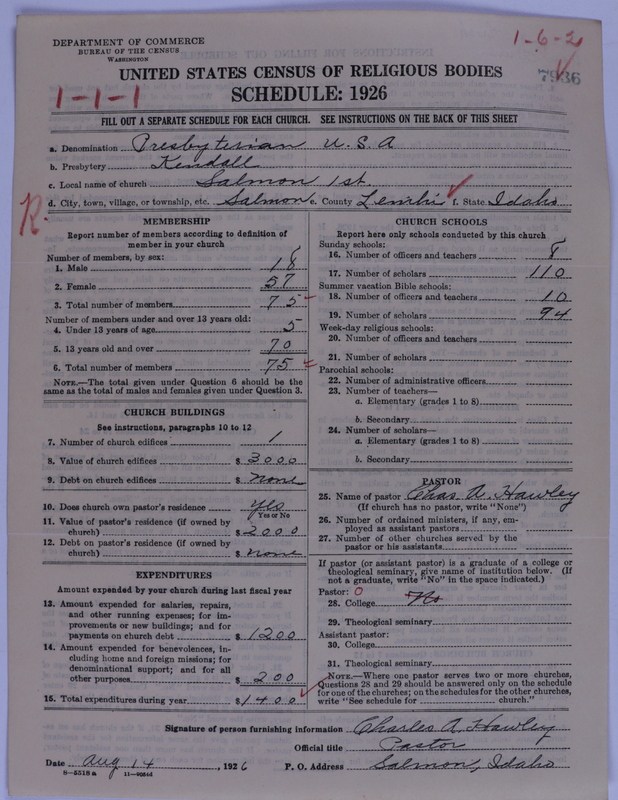 DEPARTMENT OF COMMERCE
BUREAU OF THE CENSUS
WASHINGTON
1-6-2
7936
UNITED STATES CENSUS OF RELIGIOUS BODIES
1-1-1
SCHEDULE: 1926
FILL OUT A SEPARATE SCHEDULE FOR EACH CHURCH. SEE INSTRUCTIONS ON THE BACK OF THIS SHEET
a. Denomination Presbyterian U.S.A
b. Presbytery Kendall
c. Local name of church Salmon 1st
d. City, town, village, or township, etc. Salmon e. County Lemhi f. State Idaho
R.
MEMBERSHIP
Report number of members according to definition of
member in your church
Number of members, by sex:
1. Male 18
2. Female 57
3. Total number of members 75
Number of members under and over 13 years old:
4. Under 13 years of age 5
5. 13 years old and over 70
6. Total number of members 75
NOTE.—The total given under Question 6 should be the
same as the total of males and females given under Question 3.
CHURCH BUILDINGS
See instructions, paragraphs 10 to 12
7. Number of church edifices 1
8. Value of church edifices $ 3000
9. Debt on church edifices $ none
10. Does church own pastor's residence Yes
Yes or No
11. Value of pastor's residence (if owned by
church) $ 2000
12. Debt on pastor's residence (if owned by
church) $ none
EXPENDITURES
Amount expended by your church during last fiscal year
13. Amount expended for salaries, repairs,
and other running expenses; for im-
provements or new buildings; and for
payments on church debt $ 1200
14. Amount expended for benevolences, in-
cluding home and foreign missions; for
denominational support; and for all
other purposes $ 200
15. Total expenditures during year $ 1400
CHURCH SCHOOLS
Report here only schools conducted by this church
Sunday schools:
16. Number of officers and teachers 8
17. Number of scholars 110
Summer vacation Bible schools:
18. Number of officers and teachers 10
19. Number of scholars 94
Week-day religious schools:
20. Number of officers and teachers
21. Number of scholars
Parochial schools:
22. Number of administrative officers
23. Number of teachers—
a. Elementary (grades 1 to 8)
b. Secondary
24. Number of scholars—
a. Elementary (grades 1 to 8)
b. Secondary
PASTOR
25. Name of pastor Chas. A. Hawley
(If church has no pastor, write "None")
26. Number of ordained ministers, if any, em-
ployed as assistant pastors
27. Number of other churches served by the
pastor or his assistants
If pastor (or assistant pastor) is a graduate of a college or
theological seminary, give name of institution below. (If
not a graduate, write "No" in the space indicated.)
Pastor: 0
28. College No
29. Theological seminary
Assistant pastor:
30. College
31. Theological seminary
NOTE.—Where one pastor serves two or more churches,
Questions 28 and 29 should be answered only on the schedule
for one of the churches; on the schedules for the other churches,
write "See schedule for church."
Signature of person furnishing information Charles A. Hawley
Official title Pastor
Date Aug 14, 1926 P. O. Address Salmon, Idaho
8-5518 a